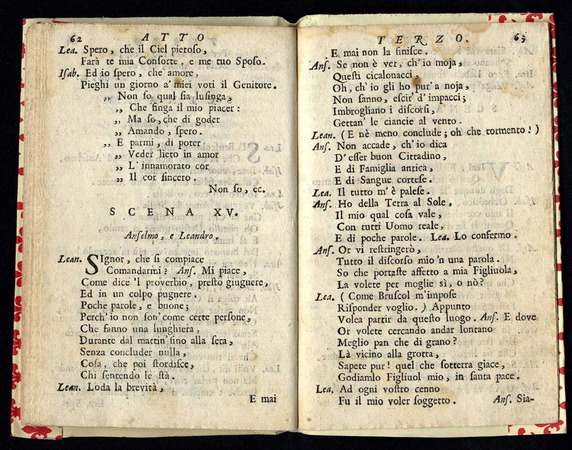 62 ATTO
Lea. Spero, che il Ciel pietoso,
Farà te mia Consorte, e me tuo Sposo.
Isab. Ed io spero, che amore,
Pieghi un giorno a' miei voti il Genitore.
„ Non so qual sia lusinga,
„ Che singa il mio piacer:
„ Ma so, che di goder
„ Amando, spero.
„ E parmi, di poter
„ Veder lieto in amor
„ L' innamorato cor
„ Il cor sincero.
Non so, ec.
SCENA XV.
Anselmo, e Leandro.
Lean. SIgnor, che si compiace
Comandarmi? Ans. Mi piace,
Come dice 'l proverbio, presto giugnere,
Ed in un colpo pugnere.
Poche parole, e buone;
Perch' io non son' come certe persone,
Che fanno una lunghiera,
Durante dal martin' sino alla sera,
Senza concluder nulla,
Cosa, che poi stordisce,
Chi sentendo le stà.
Lean. Loda la brevità,
E mai
TERZO. 63
E mai non la finisce.
Ans. Se non è ver, ch' io moja,
Questi cicalonacci
Oh, ch' io gli ho pur' a noja,
Non sanno, escir' d' impacci;
Imbrogliano i discorsi,
Gettan' le ciancie al vento.
Lean. (E nè meno conclude; oh che tormento!)
Ans. Non accade, ch' io dica
D' esser buon Cittadino,
E di Famiglia antica,
E di Sangue cortese.
Lea. Il tutto m' è palese.
Ans. Ho della Terra al Sole,
Il mio qual cosa vale,
Con tutti Uomo reale,
E di poche parole. Lea. Lo confermo.
Ans. Or vi restringerò,
Tutto il discorso mio 'n una parola.
So che portaste affetto a mia Figliuola,
La volete per moglie sì, o nò?
Lea. (Come Bruscol m' impose
Risponder voglio.) Appunto
Volea partir da questo luogo. Ans. E dove
Or volete cercando andar lontano
Meglio pan che di grano?
Là vicino alla grotta,
Sapete pur! quel che sotterra giace,
Godiamlo Figliuol mio, in santa pace.
Lea. Ad ogni vostro cenno
Fu il mio voler soggetto. Ans. Sia-